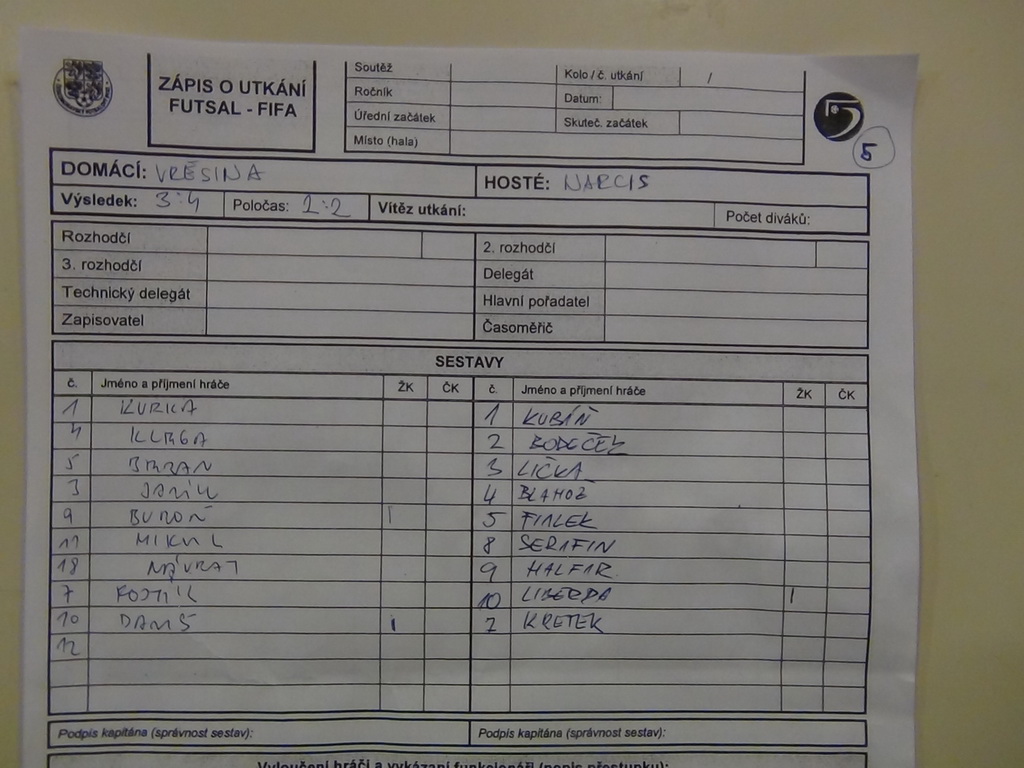 ZÁPIS O UTKÁNÍ
FUTSAL - FIFA
Soutěž Kolo / č. utkání /
Ročník Datum:
Úřední začátek Skuteč. začátek
Místo (hala)
5
DOMÁCÍ: VŘESINA HOSTÉ: NARCIS
Výsledek: 3:4 Poločas: 2:2 Vítěz utkání: Počet diváků:
Rozhodčí 2. rozhodčí
3. rozhodčí Delegát
Technický delegát Hlavní pořadatel
Zapisovatel Časoměřič
SESTAVY
č. Jméno a příjmení hráče ŽK ČK č. Jméno a příjmení hráče ŽK ČK
1 KURKA 1 KUBÁŇ
4 2 BODEČEK
5 3 LIČKA
3 4
9 BUROŇ I 5 FIALEK
11 MIKUL 8 SERAFIN
18 NÁVRAT 9 HALFAR
7 FOJTÍK 10 LIBERDA I
10 DANIŠ I 7 KRETEK
12
Podpis kapitána (správnost sestav): Podpis kapitána (správnost sestav):
Vyloučení hráči a vykázaní funkcionáři (popis přestupku):